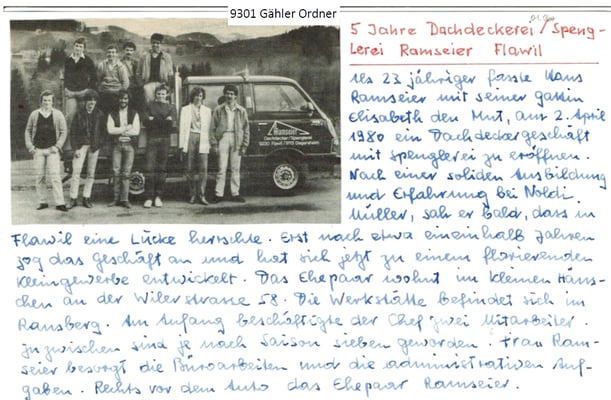 9301 Gähler Ordner
5 Jahre Dachdeckerei / Speng-
lerei Ramseier Flawil
Als 23 jähriger fasste Hans
Ramseier mit seiner gattin
Elisabeth den Mut, am 2. April
1980 ein Dachdeckergeschäft
mit Spenglerei zu eröffnen.
Nach einer soliden Ausbildung
und Erfahrung bei Noldi
Müller, sah er bald, dass in
Flawil eine Lücke herrschte. Erst nach etwa eineinhalb Jahren
zog das Geschäft an und hat sich jetzt zu einem florierenden
Kleingewerbe entwickelt. Das Ehepaar wohnt im kleinen Häus-
chen an der Wilerstrasse 58. Die Werkstätte befindet sich im
Ransberg. Am Anfang beschäftigte der Chef zwei Mitarbeiter.
Inzwischen sind je nach Saison sieben geworden. Frau Ram-
seier besorgt die Büroarbeiten und die administrativen Auf-
gaben. Rechts vor dem Auto das Ehepaar Ramseier.
Ramseier
Dachdeckerei / Spenglerei
9230 Flawil / 9113 Degersheim